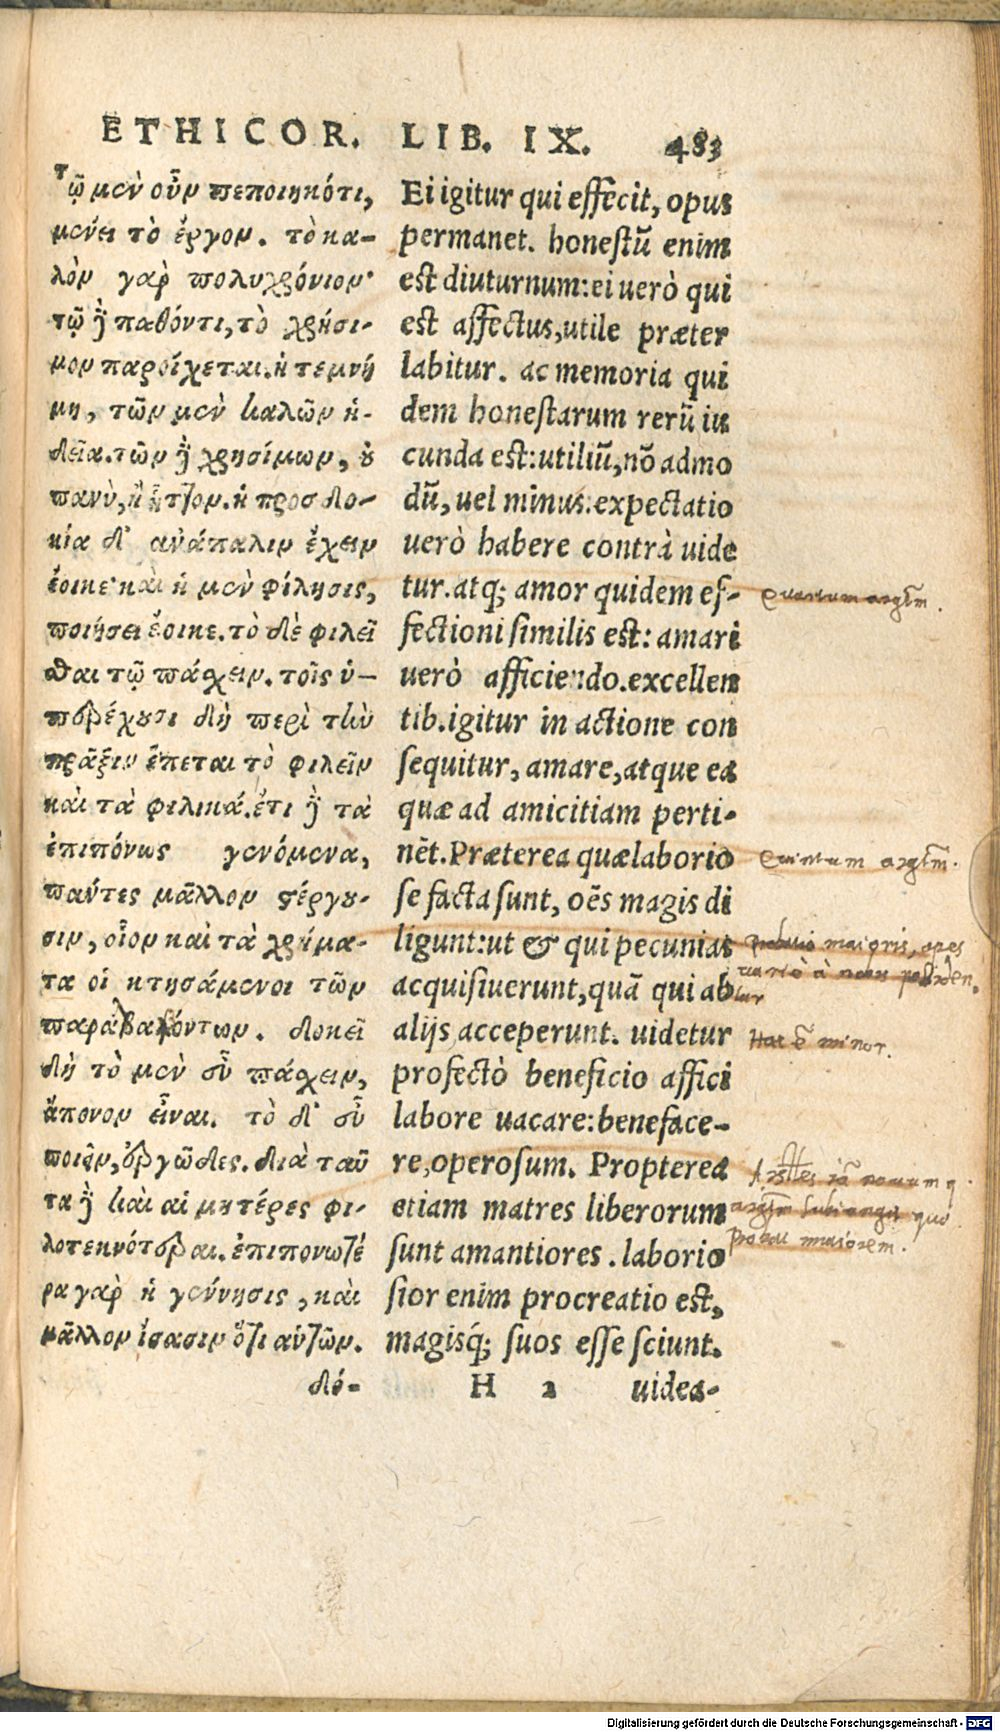 ETHICOR. LIB. IX. 483
τῷ μὲν οὖν πεποιηκότι,
μένει τὸ ἔργον. τὸ κα-
λὸν γαρ πολυχρόνιον·
τῷ δὲ παθόντι, τὸ χρήσι-
μον παροίχεται. ἥ τε μνή
μη, τῶν μὲν καλῶν ἡ-
δεῖα. τῶν δὲ χρησίμων, οὐ
πανὺ, ἢ ἧττον. ἡ προσδο-
κία δ' ἀνάπαλιν ἔχειν
ἔοικε· καὶ ἡ μὲν φίλησις,
ποιήσει ἔοικε. τὸ δὲ φιλεῖ
σθαι τῷ πάσχειν. τοῖς ὑ-
περέχουσι δὴ περὶ τὴν
πρᾶξιν ἕπεται τὸ φιλεῖν
καὶ τὰ φιλικά. ἔτι δὲ τὰ
ἐπιπόνως γενόμενα,
πάντες μᾶλλον στέργου-
σιν, οἷον καὶ τὰ χρήμα-
τα οἱ κτησάμενοι τῶν
παραλαβόντων. δοκεῖ
δὴ τὸ μὲν εὖ πάσχειν,
ἄπονον εἶναι. τὸ δ' εὖ
ποιεῖν, ἐργῶδες. διὰ ταῦ
τα δὲ καὶ αἱ μητέρες φι-
λοτεκνότεραι. ἐπιπονωτέ
ρα γαρ ἡ γέννησις, καὶ
μᾶλλον ἴσασιν ὅτι αὐτῶν.
δό-
Ei igitur qui effecit, opus
permanet. honestũ enim
est diuturnum: ei uerò qui
est affectus, utile præter
labitur. ac memoria qui
dem honestarum rerũ iu
cunda est: utiliũ, nõ admo
dũ, uel minus: expectatio
uerò habere contrà uide
tur. atq; amor quidem ef-
fectioni similis est: amari
uerò afficiendo. excellen
tib. igitur in actione con
sequitur, amare, atque ea
quæ ad amicitiam perti-
nẽt. Præterea quæ laborio
se facta sunt, oẽs magis di
ligunt: ut & qui pecunias
acquisiuerunt, quã qui ab
alijs acceperunt. uidetur
profectò beneficio affici
labore uacare: beneface-
re, operosum. Propterea
etiam matres liberorum
sunt amantiores. laborio
sior enim procreatio est,
magisq́; suos esse sciunt.
H 2 uidea-
Quartum argtm̃.
Quintum argtm̃.
Probatio maioris, opes
Haec ẽ minor.
argtm̃ subiungit quo
probat maiorem.
Digitalisierung gefördert durch die Deutsche Forschungsgemeinschaft - DFG